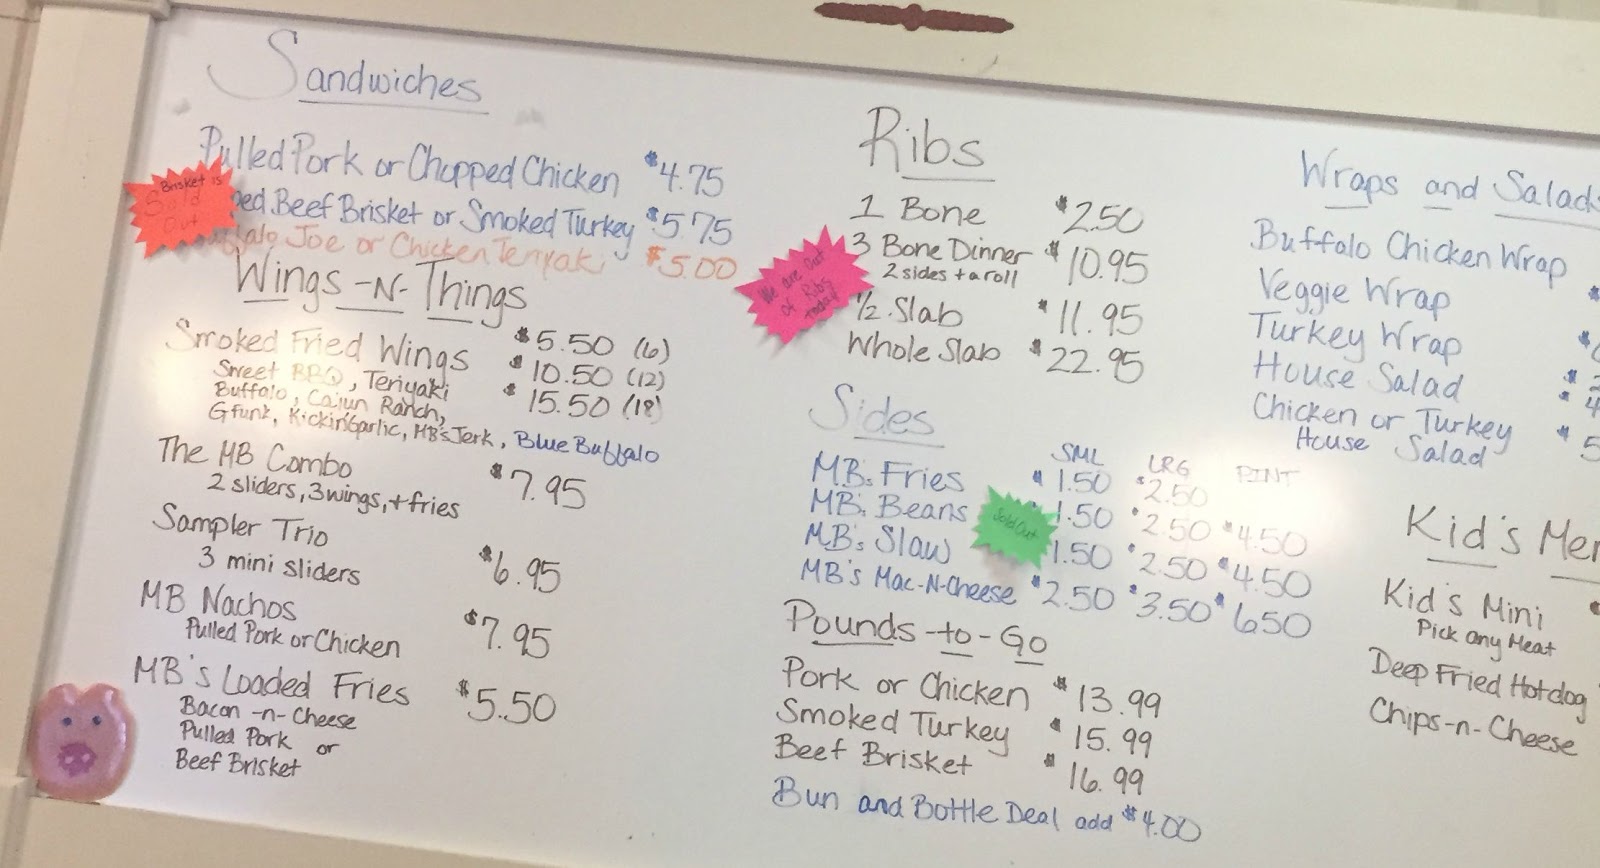 Sandwiches
Pulled Pork or Chopped Chicken $4.75
ped Beef Brisket or Smoked Turkey $5.75
Buffalo Joe or Chicken Teriyaki $5.00
Brisket is
Sold
Out
Wings -N- Things
Smoked Fried Wings $5.50 (6)
$10.50 (12)
$15.50 (18)
Sweet BBQ, Teriyaki
Buffalo, Cajun Ranch,
G funk, Kickin' Garlic, MB's Jerk, Blue Buffalo
The MB Combo $7.95
2 sliders, 3 wings, + fries
Sampler Trio $6.95
3 mini sliders
MB Nachos $7.95
Pulled Pork or Chicken
MB's Loaded Fries $5.50
Bacon -n- Cheese
Pulled Pork or
Beef Brisket
Ribs
1 Bone $2.50
3 Bone Dinner $10.95
2 sides + a roll
1/2 Slab $11.95
Whole Slab $22.95
We are Out
of Ribs
today
Sides
SML LRG PINT
MB's Fries $1.50 $2.50
MB's Beans $1.50 $2.50 $4.50
MB's Slaw 1.50 $2.50 $4.50
MB's Mac-N-Cheese $2.50 $3.50 $6.50
Sold Out
Pounds-to-Go
Pork or Chicken $13.99
Smoked Turkey $15.99
Beef Brisket $16.99
Bun and Bottle Deal add $4.00
Wraps and Salads
Buffalo Chicken Wrap
Veggie Wrap $
Turkey Wrap $
House Salad $
Chicken or Turkey $5
House Salad
Kid's Men
Kid's Mini
Pick any Meat
Deep Fried Hotdog
Chips-n-Cheese